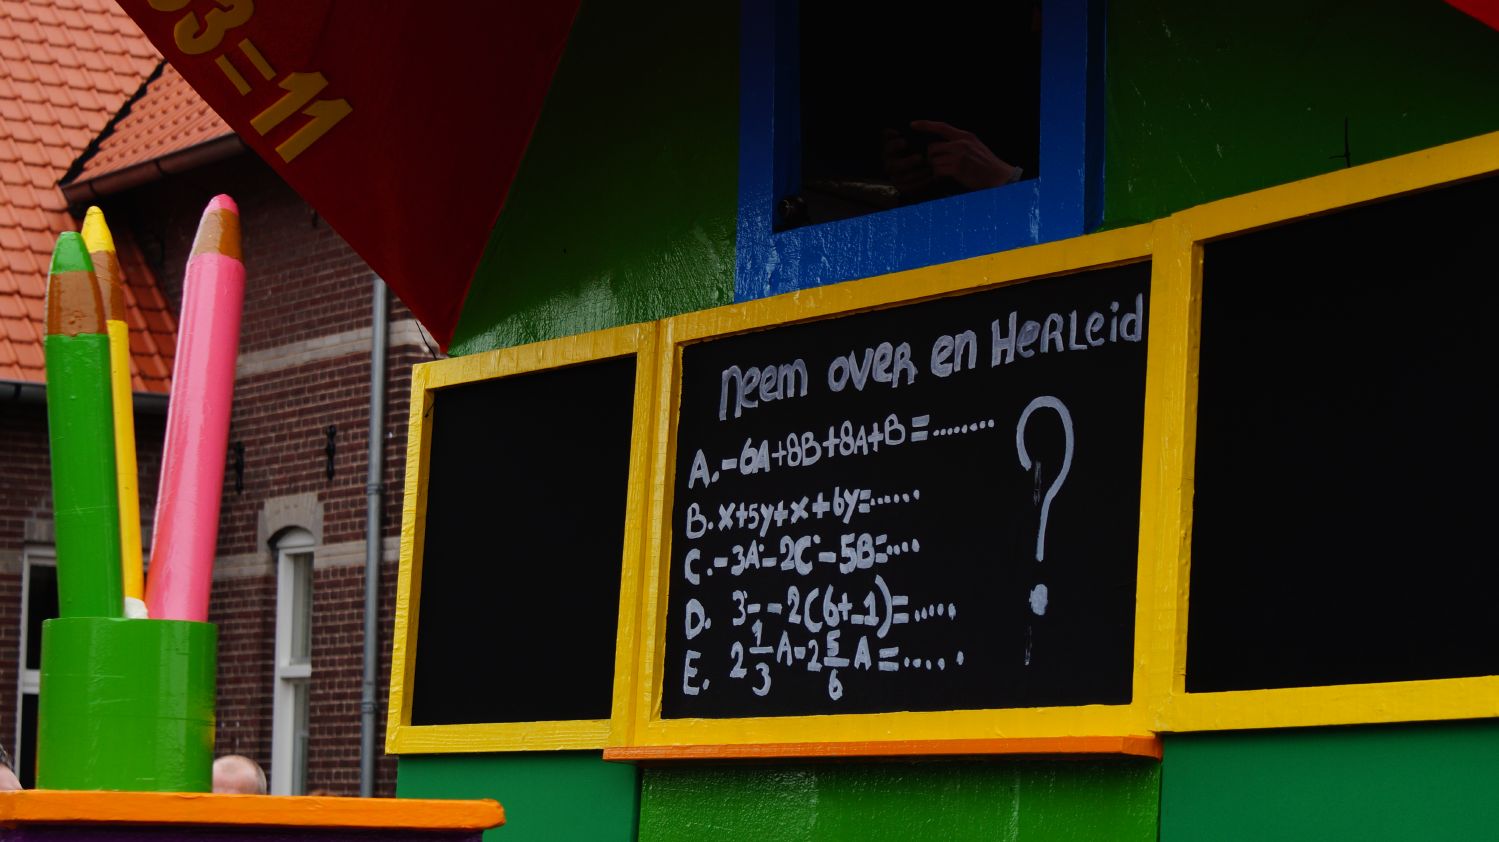 3=11
Neem over en Herleid
A.-6A+8B+8A+B=........
?
B.x+5y+x+6y=......
C.-3A-2C-5B=....
D. 3--2(6+-1)=.....
E. 2 1/3 A-2 5/6 A=.....